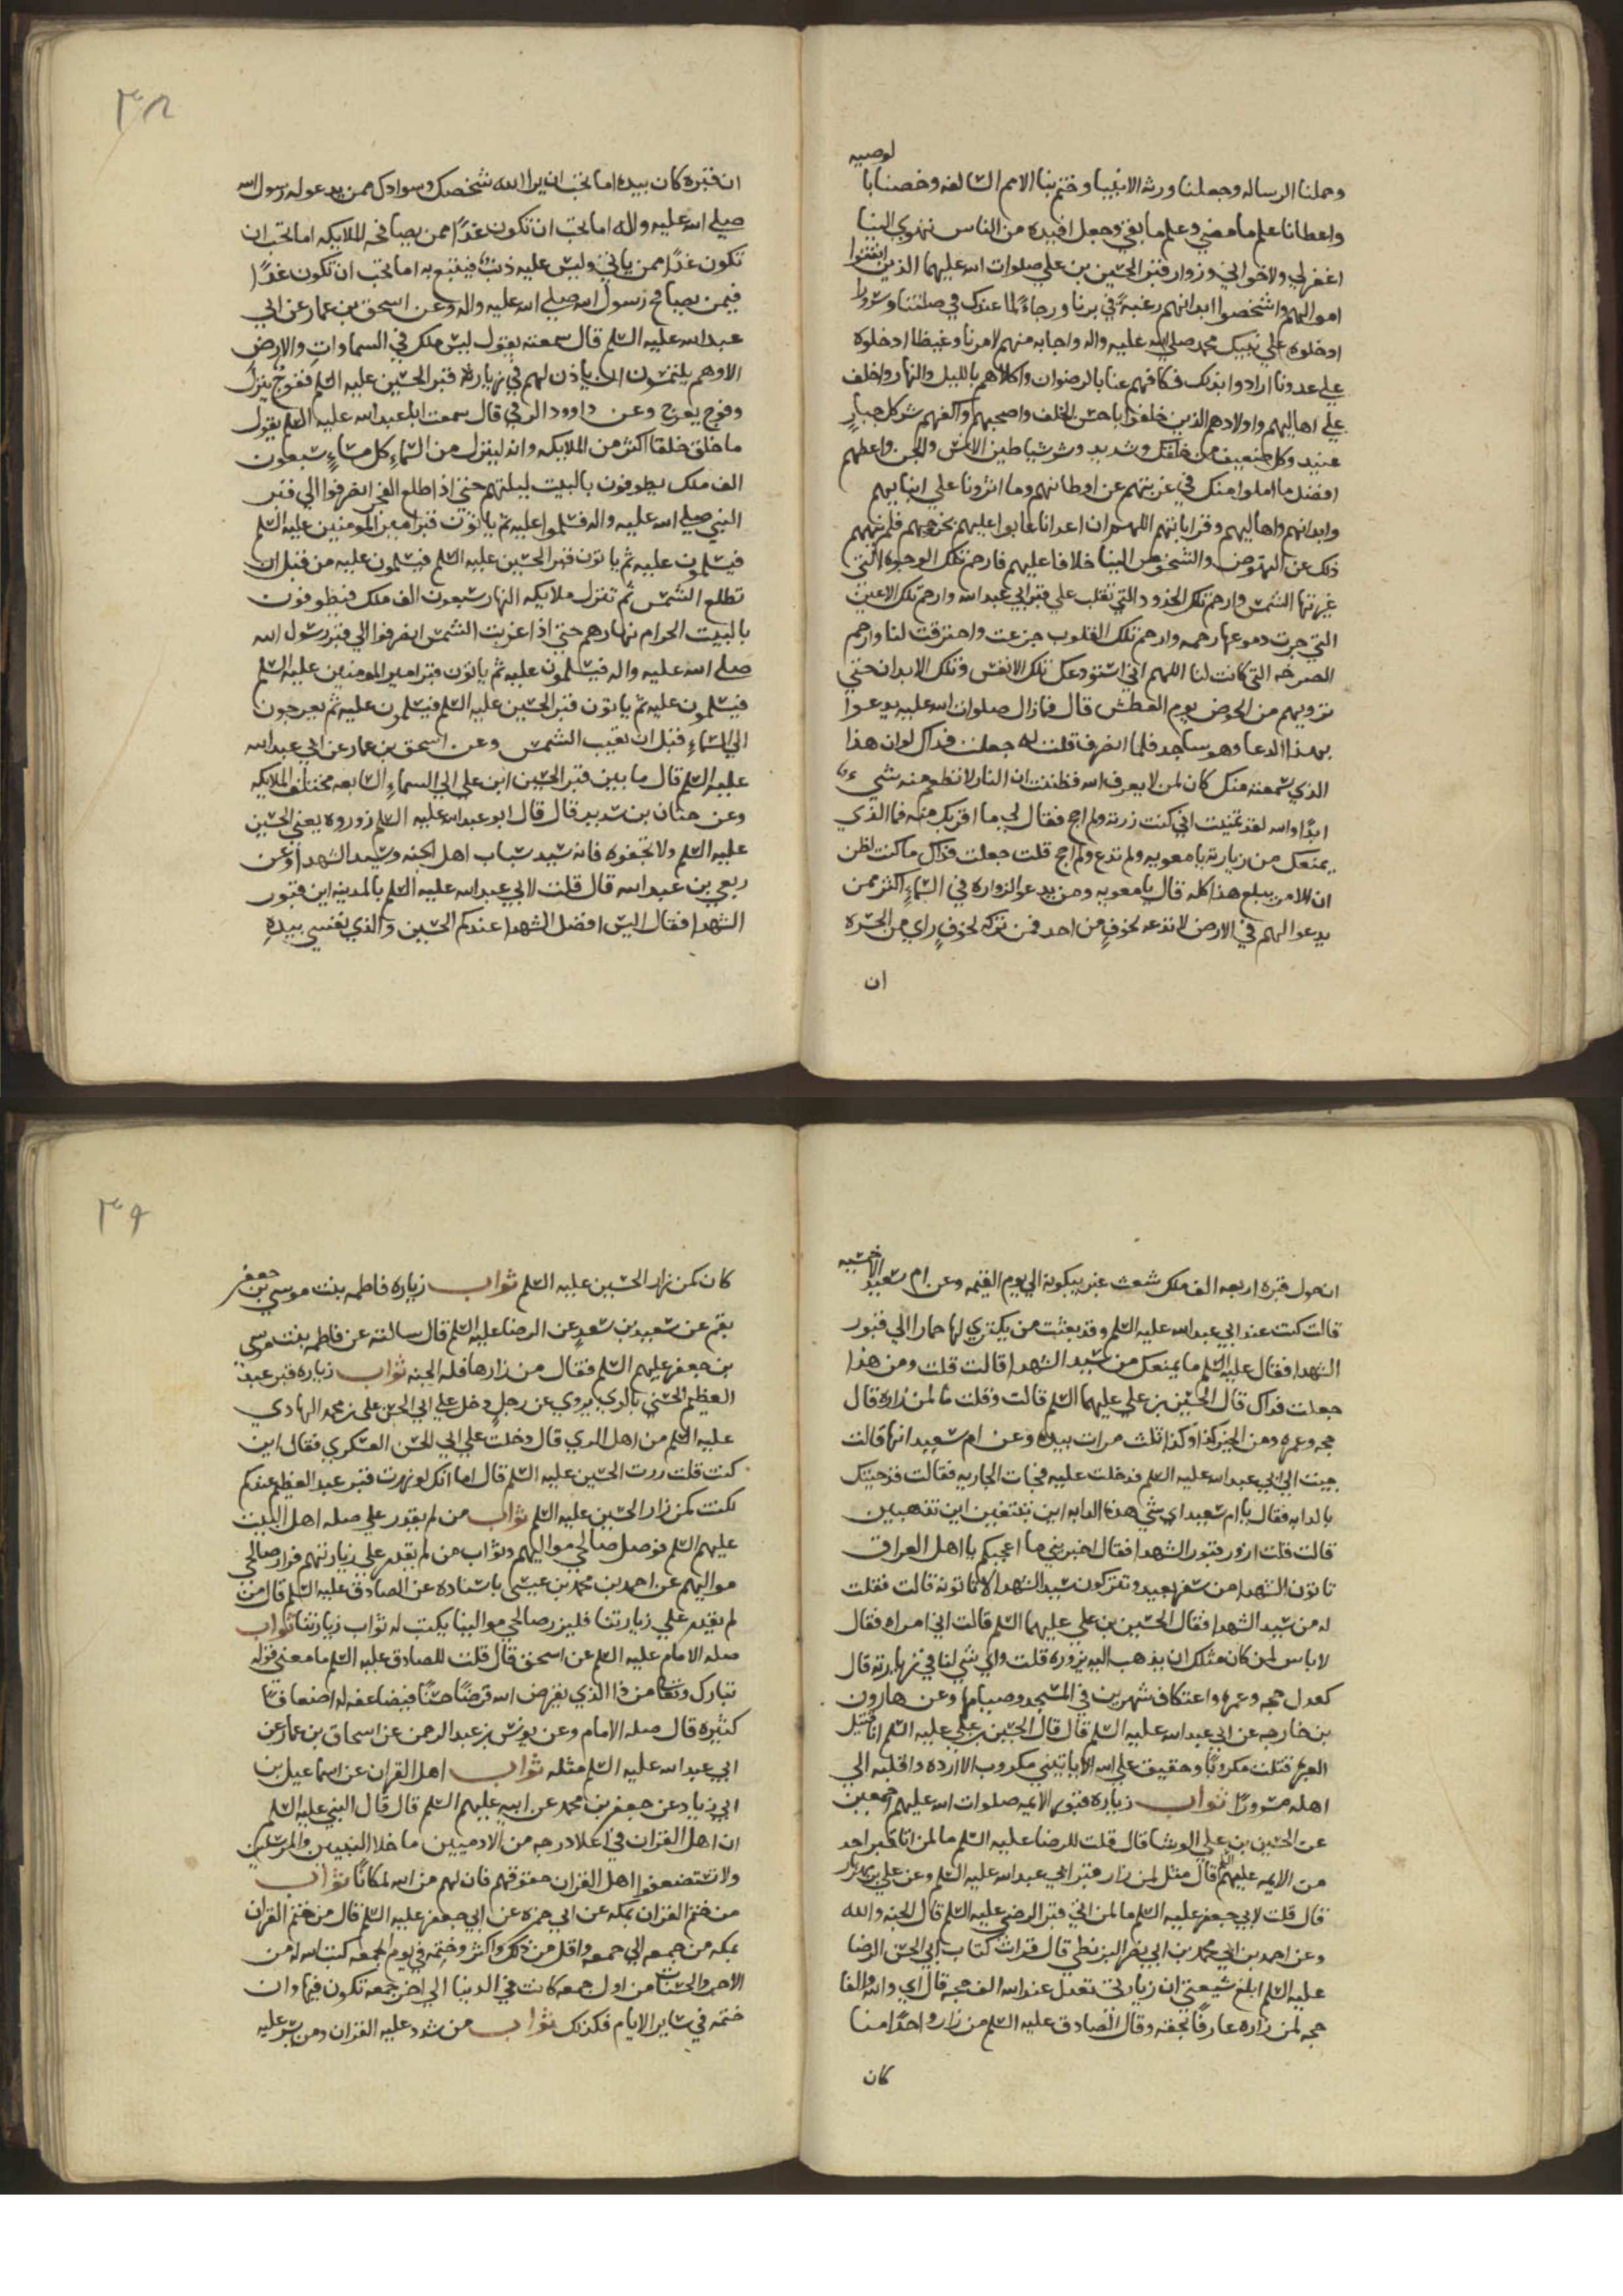 لوصيه
وحملنا الرساله وجعلنا ورثه الانبيا وختم بنا الامم السالفه وخصنا با
واعطانا علم ما مضي وعلم ما بقي وجعل افيده من الناس تهوي الينا
اغفر لي ولاخواني وزوار قبر الحسين بن علي صلوات اسه عليهما الذين انفقوا
اموالهم واشخصوا ابدانهم رغبةً في برنا ورجاءً لما عندك في صلتنا وسرورا
ادخلوه علي نبيك محمد صلي الله عليه واله واجابه منهم لامرنا وغيظا ادخلوه
علي عدونا ارادوا بذلك فكافهم عنا بالرضوان واكلاهم بالليل والنهار واخلف
علي اهاليهم واولادهم الذين خلفوا باحسن الخلف واصحبهم واكفهم شر كل جبارٍ
عنيد وكل ضعيف من خلقك وشديد وشر شياطين الانس والجن واعطهم
افضل ما املوا منك في غربتهم عن اوطانهم وما اثرونا علي ابنايهم
وابدانهم واهاليهم وقراباتهم اللهم ان اعدانا عابوا عليهم بخروجهم فلم ينههم
ذلك عن النهوض والشخوص الينا خلافا عليهم فارحم تلك الوجوه التي
غيرتها الشمس وارحم تلك الخدود التي تقلب علي قبر ابي عبد اسه وارحم تلك الاعين
التي جرت دموعها رحمه وارحم تلك القلوب جزعت واحترقت لنا وارحم
الصرخه التي كانت لنا اللهم اني استودعك تلك الانفس وتلك الابدان حتي
ترويهم من الحوض يوم العطش قال فمازال صلوات اسه عليه يدعوا
بهذا الدعا وهو ساجد فلما انصرف قلت له جعلت فداك لو ان هذا
الذي سمعته منك كان لمن لا يعرف اسه فظننت ان النار لا تطعم منه شي
ابدًا واسه لقد تمنيت اني كنت زرته ولم احج فقال لي ما اقربك منه فما الذي
يمنعك من زيارته يا معويه ولم تدع ولم احج قلت جعلت فداك ما كنت اظن
ان الامر يبلغ هذا كله قال يا معويه ومن يدعو لزواره في السماء اكثر ممن
يدعوا لهم في الارض لا تدعه لخوفٍ من احد فمن تركه لخوفٍ راي من الحسره
ان
٣٨
ان قبره كان بيده اما تحب ان يرا الله شخصك وسوادك ممن يدعو له رسول اسه
صلي اسه عليه واله اما تحب ان تكون غدًا ممن يصافحه الملايكه اما تحب ان
تكون غدًا ممن ياتي وليس عليه ذنب فيتبع به اما تحب ان تكون غدًا
فيمن يصافح رسول اسه صلي اسه عليه واله وعن اسحق بن عمار عن ابي
عبد اسه عليه السلم قال سمعته يقول ليس ملك في السماوات والارض
الا وهم يلتمسون ان ياذن لهم في زيارة قبر الحسين عليه السلم ففوجٌ ينزل
وفوج يعرج وعن داوود الرقي قال سمعت ابا عبد اسه عليه السلم يقول
ما خلق خلقا اكثر من الملايكه وانه لينزل من السماءِ كل مساءٍ سبعون
الف ملك يطوفون بالبيت ليلتهم حتي اذا طلع الفجر انصرفوا الي قبر
النبي صلي اسه عليه واله فسلموا عليه ثم ياتون قبر امير المومنين عليه السلم
فيسلمون عليه ثم ياتون قبر الحسين عليه السلم فيسلمون عليه من قبل ان
تطلع الشمس ثم تنزل ملايكه النهار سبعون الف ملك فيطوفون
بالبيت الحرام نهارهم حتي اذا غربت الشمس انصرفوا الي قبر رسول اسه
صلي اسه عليه واله فيسلمون عليه ثم ياتون قبر امير المومنين عليه السلم
فيسلمون عليه ثم ياتون قبر الحسين عليه السلم فيسلمون عليه ثم يعرجون
الي السماءِ قبل ان تغيب الشمس وعن اسحق بن عمار عن ابي عبد اسه
عليه السلم قال ما بين قبر الحسين ابن علي الي السماءِ السابعه مختلف الملايكه
وعن حنان بن سدير قال قال ابو عبد اسه عليه السلم زوروه يعني الحسين
عليه السلم ولا تجفوه فانه سيد شباب اهل الجنه وسيد الشهدا وعن
ربعي بن عبد اسه قال قلت لابي عبد اسه عليه السلم بالمدينه اين قبور
الشهدا فقال اليس افضل الشهدا عندكم الحسين والذي نفسي بيدهِ
ان حول قبره اربعه الف ملك شعث غبر يبكونه الي يوم القيمه وعن ام سعيد الاحمسيه
قالت كنت عند ابي عبد اسه عليه السلم وقد بعثت من يكتري لها حمارا الي قبور
الشهدا فقال عليه السلم ما يمنعك من سيد الشهدا قالت قلت ومن هذا
جعلت فداك قال الحسين بن علي عليهما السلم قالت وقلت ما لمن زاره قال
حجه وعمره ومن الخير كذا وكذا ثلث مرات بيده وعن ام سعيد انها قالت
جيت الي ابي عبد اسه عليه السلم فدخلت عليه فجات الجاريه فقالت قد جيتك
بالدابه فقال يا ام سعيد اي شي هذه الدابه اين تبتغين اين تذهبين
قالت قلت ازور قبور الشهدا فقال اخبريني ما اعجبكم يا اهل العراق
تاتون الشهدا من سفر بعيد وتتركون سيد الشهدا لا تاتونه قالت فقلت
له من سيد الشهدا فقال الحسين بن علي عليهما السلم قالت اني امراه فقال
لا باس لمن كان مثلك ان يذهب اليه يزوره قلت واي شي لنا في زيارته قال
كعدل حجه وعمره واعتكاف شهرين في المسجد وصيامها وعن هارون
بن خارجه عن ابي عبد اسه عليه السلم قال قال الحسين بن علي عليه السلم انا قتيل
العبره قتلت مكروبًا وحقيق علي اسه الا ياتيني مكروب الا ارده واقلبه الي
اهله مسرورًا ثواب زياره قبور الايمه صلوات اسه عليهم اجمعين
عن الحسين بن علي الوشا قال قلت للرضا عليه السلم ما لمن اتا قبر احد
من الايمه عليهم السلم قال مثل لمن زار قبر ابي عبد اسه عليه السلم وعن علي بن مهزيار
قال قلت لابي جعفر عليه السلم ما لمن اتي قبر الرضي عليه السلم قال الجنه والله
وعن احمد بن ابي محمد بن ابي نصر البزنطي قال قرات كتاب ابي الحسن الرضا
عليه السلم ابلغ شيعتي ان زيارتي تعدل عند اسه الف حجه قال اي والله والفا
حجه لمن زاره عارفًا بحقه وقال الصادق عليه السلم من زار واحدًا منا
كان
٣٩
كان كمن زار الحسين عليه السلم ثواب زياره فاطمه بنت موسي بن جعفر
بقم عن سعيد بن سعدٍ عن الرضا عليه السلم قال سالته عن فاطمه بنت موسي
بن جعفر عليهم السلم فقال من زارها فله الجنه ثواب زياره قبر عبد
العظيم الحسني بالري يروي عن رجلٍ دخل علي ابي الحسن علي بن محمد الهادي
عليه السلم من اهل الري قال دخلت علي ابي الحسن العسكري فقال اين
كنت قلت زرت الحسين عليه السلم قال اما انك لو زرت قبر عبد العظيم عندكم
لكنت كمن زار الحسين عليه السلم ثواب من لم يقدر علي صله اهل البيت
عليهم السلم فوصل صالحي مواليهم وثواب من لم يقدر علي زيارتهم فزار صالحي
مواليهم عن احمد بن محمد بن عيسي باسناده عن الصادق عليه السلم قال من
لم يقدر علي زيارتنا فليزر صالحي موالينا يكتب له ثواب زيارتنا ثواب
صله الامام عليه السلم عن اسحق قال قلت للصادق عليه السلم ما معني قوله
تبارك وتعا من ذا الذي يقرض اسه قرضًا حسنًا فيضاعفه له اضعافًا
كثيره قال صله الامام وعن يونس بن عبد الرحمن عن اسحاق بن عمار عن
ابي عبد اسه عليه السلم مثله ثواب اهل القران عن اسماعيل بن
ابي زياد عن جعفر بن محمد عن ابيه عليهم السلم قال قال النبي عليه السلم
ان اهل القران في اعلا درجه من الادميين ما خلا النبيين والمرسلين
ولا تستضعفوا اهل القران حقوقهم فان لهم من اسه لمكانًا ثواب
من ختم القران بمكه عن ابي حمزه عن ابي جعفر عليه السلم قال من ختم القران
بمكه من جمعه الي جمعه واقل من ذلك واكثر وختمه في يوم الجمعه كتب اسه له من
الاجر والحسنات من اول جمعه كانت في الدنيا الي اخر جمعه تكون فيها وان
ختمه في ساير الايام فكذلك ثواب من شدد عليه القران ومن يسر عليه